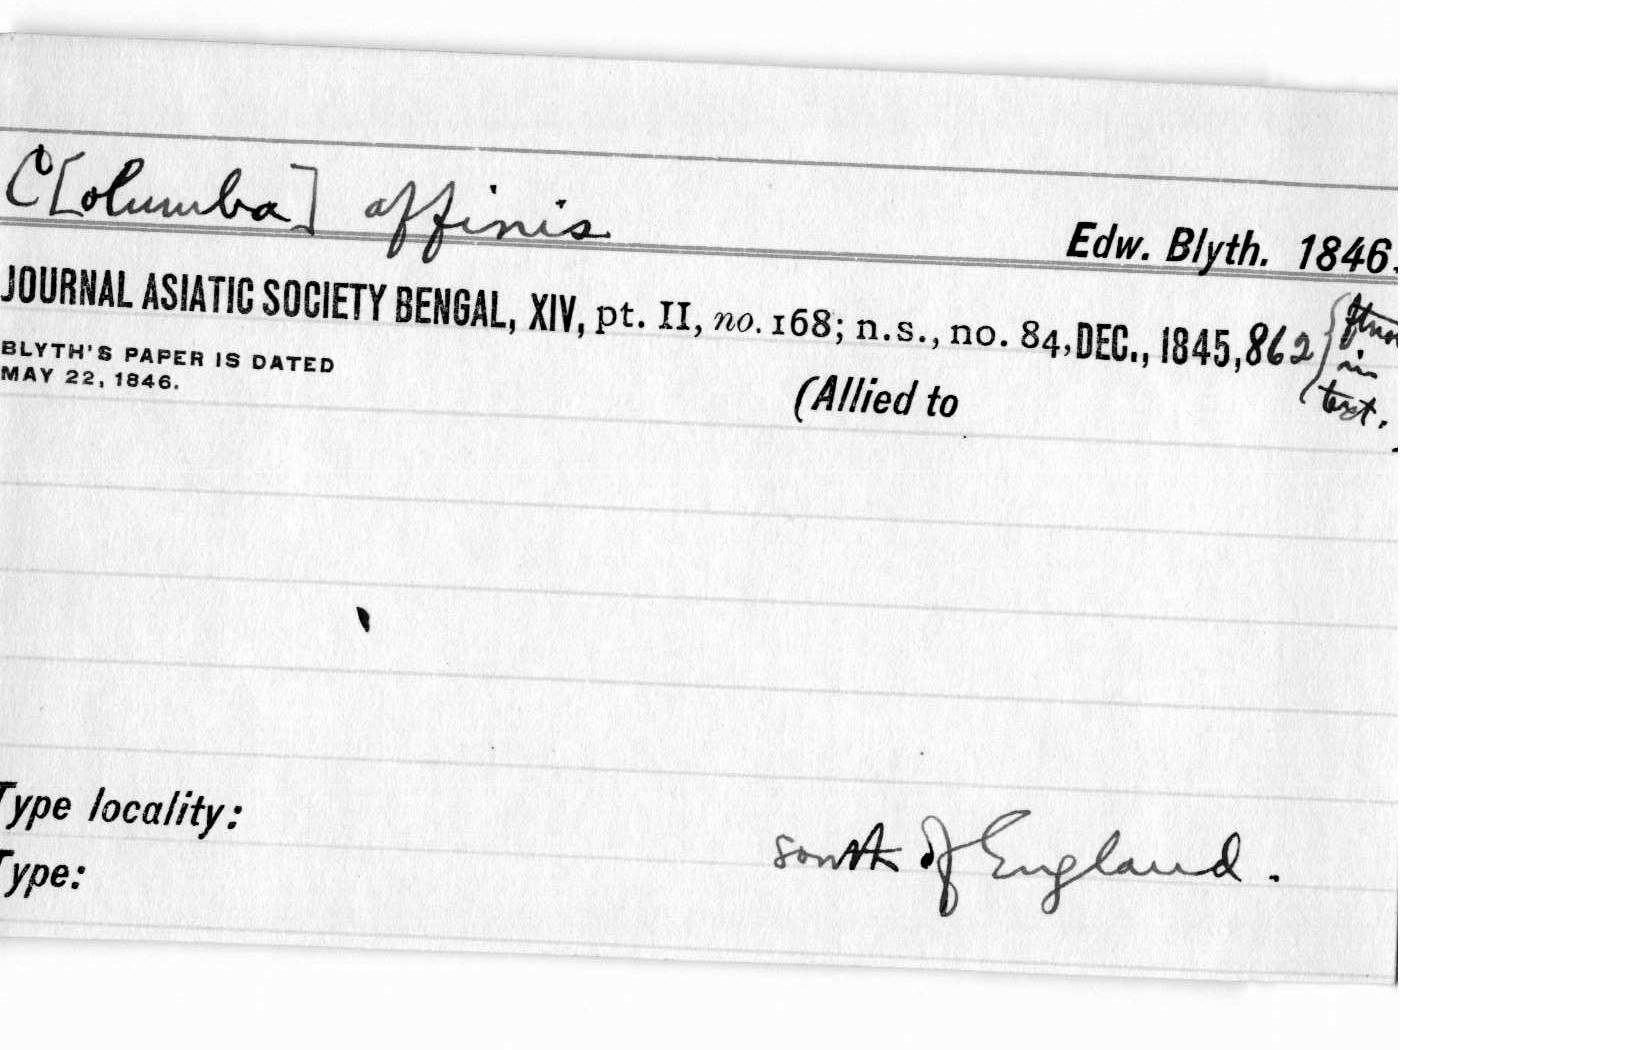 C[olumba] affinis
Edw. Blyth. 1846.
JOURNAL ASIATIC SOCIETY BENGAL, XIV, pt. II, no. 168; n.s., no. 84, DEC., 1845, 862
in
text.
BLYTH'S PAPER IS DATED
MAY 22, 1846.
(Allied to
Type locality:
south of England.
Type: